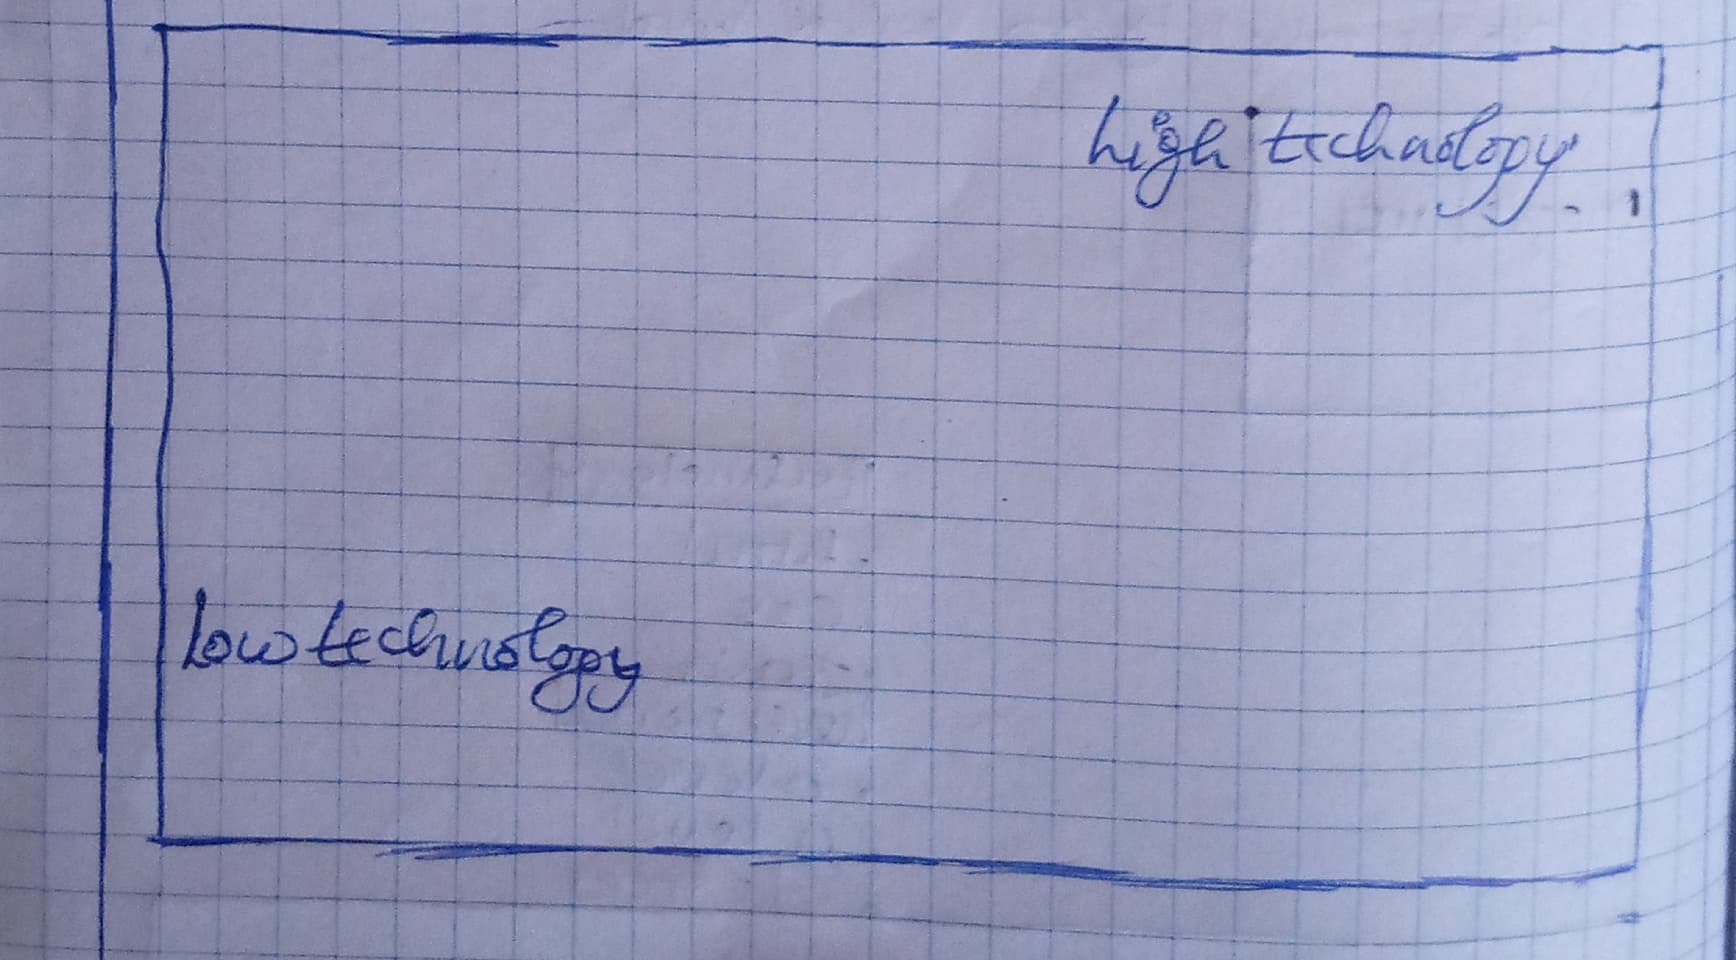 high technology
Low technology